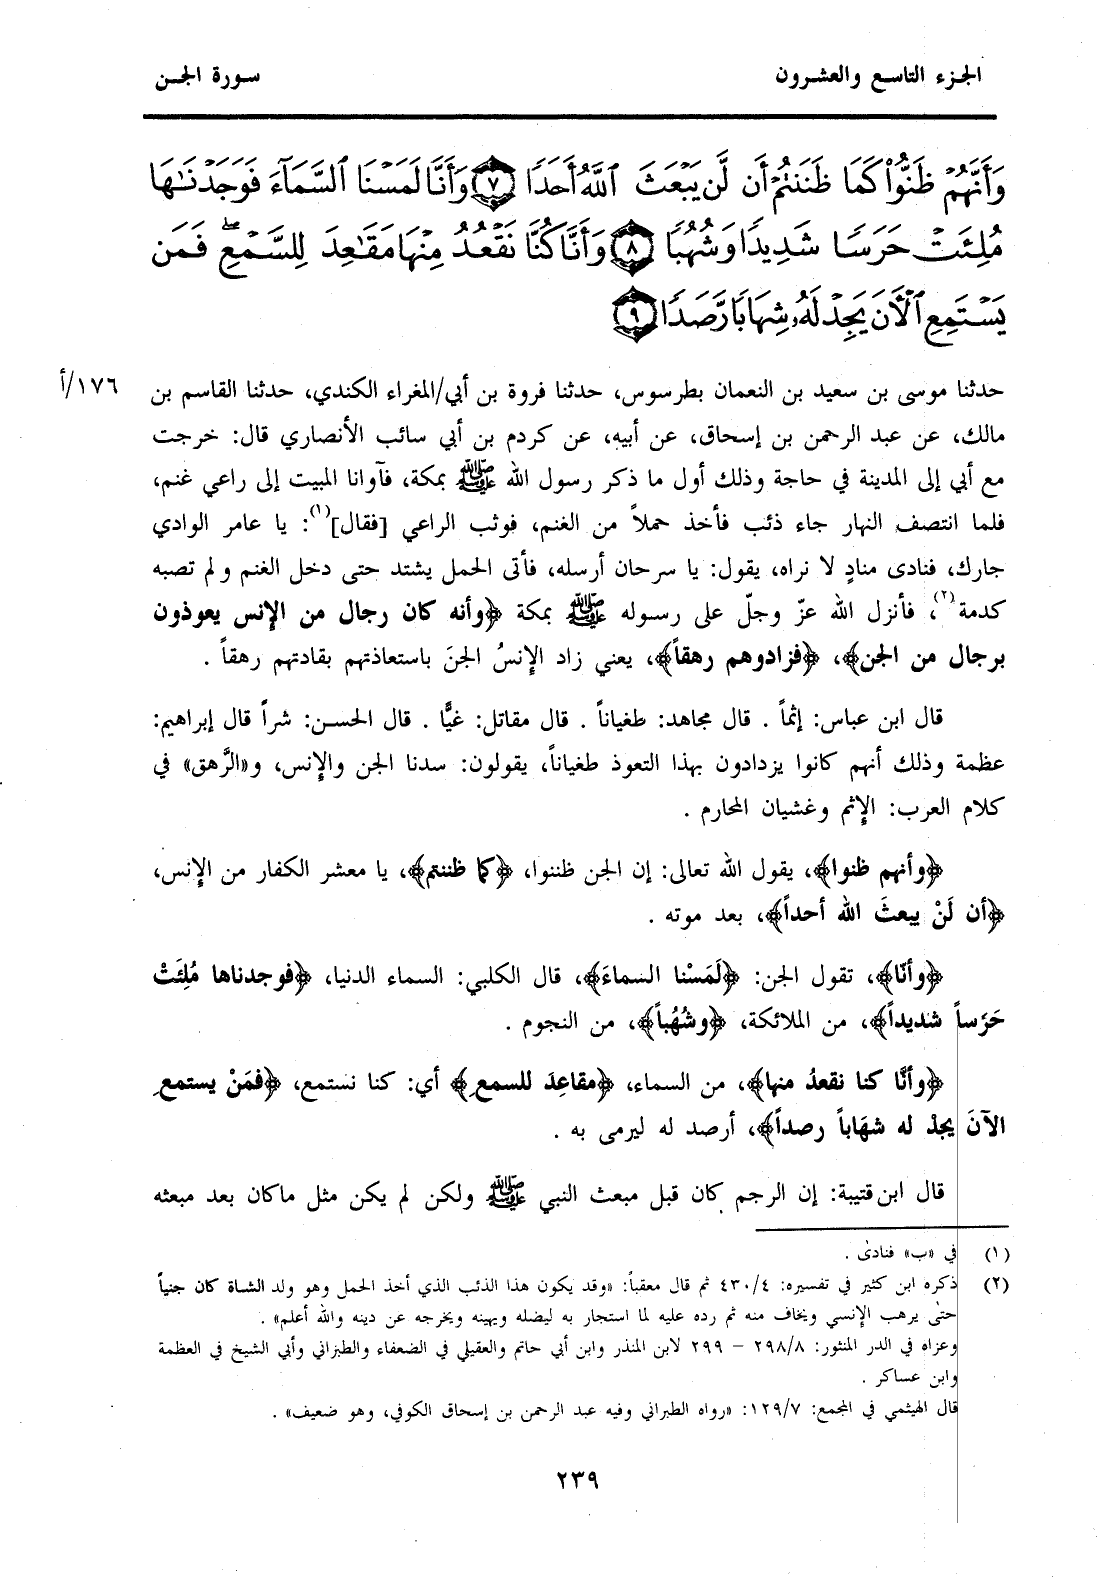 الجزء التاسع والعشرون
سورة الجن
وَأَنَّهُمْ ظَنُّوا۟ كَمَا ظَنَنتُمْ أَن لَّن يَبْعَثَ ٱللَّهُ أَحَدًا ﴿٧﴾ وَأَنَّا لَمَسْنَا ٱلسَّمَآءَ فَوَجَدْنَـٰهَا
مُلِئَتْ حَرَسًا شَدِيدًا وَشُهُبًا ﴿٨﴾ وَأَنَّا كُنَّا نَقْعُدُ مِنْهَا مَقَـٰعِدَ لِلسَّمْعِ ۖ فَمَن
يَسْتَمِعِ ٱلْـَٔانَ يَجِدْ لَهُۥ شِهَابًا رَّصَدًا ﴿٩﴾
حدثنا موسى بن سعيد بن النعمان بطرسوس، حدثنا فروة بن أبي/المغراء الكندي، حدثنا القاسم بن
١٧٦/أ
مالك، عن عبد الرحمن بن إسحاق، عن أبيه، عن كردم بن أبي سائب الأنصاري قال: خرجت
مع أبي إلى المدينة في حاجة وذلك أول ما ذكر رسول الله ﷺ بمكة، فآوانا المبيت إلى راعي غنم،
فلما انتصف النهار جاء ذئب فأخذ حملاً من الغنم، فوثب الراعي [فقال](١): يا عامر الوادي
جارك، فنادى منادٍ لا نراه، يقول: يا سرحان أرسله، فأتى الحمل يشتد حتى دخل الغنم و لم تصبه
كدمة(٢)، فأنزل الله عزّ وجلّ على رسوله ﷺ بمكة ﴿وأنه كان رجال من الإنس يعوذون
برجال من الجن﴾، ﴿فزادوهم رهقاً﴾، يعني زاد الإنسُ الجنَ باستعاذتهم بقادتهم رهقاً .
قال ابن عباس: إثماً . قال مجاهد: طغياناً . قال مقاتل: غيًّا . قال الحسن: شراً قال إبراهيم:
عظمة وذلك أنهم كانوا يزدادون بهذا التعوذ طغياناً، يقولون: سدنا الجن والإنس، و«الرَّهق» في
كلام العرب: الإثم وغشيان المحارم .
﴿وأنهم ظنوا﴾، يقول الله تعالى: إن الجن ظننوا، ﴿كما ظننتم﴾، يا معشر الكفار من الإنس،
﴿أن لَنْ يبعثَ الله أحداً﴾، بعد موته .
﴿وأنّا﴾، تقول الجن: ﴿لَمَسْنا السماءَ﴾، قال الكلبي: السماء الدنيا، ﴿فوجدناها مُلِئَتْ
حَرَساً شديداً﴾، من الملائكة، ﴿وشُهُباً﴾، من النجوم .
﴿وأنَّا كنا نقعدُ منها﴾، من السماء، ﴿مقاعِدَ للسمعِ﴾ أي: كنا نستمع، ﴿فمَنْ يستمعِ
الآنَ يجدْ له شهَاباً رصداً﴾، أرصد له ليرمى به .
قال ابن قتيبة: إن الرجم كان قبل مبعث النبي ﷺ ولكن لم يكن مثل ماكان بعد مبعثه
(١) في «ب» فنادىٰ .
(٢) ذكره ابن كثير في تفسيره: ٤٣٠/٤ ثم قال معقباً: «وقد يكون هذا الذئب الذي أخذ الحمل وهو ولد الشاة كان جنياً
حتىٰ يرهب الإنسي ويخاف منه ثم رده عليه لما استجار به ليضله ويهينه ويخرجه عن دينه والله أعلم» .
وعزاه في الدر المنثور: ٢٩٨/٨ – ٢٩٩ لابن المنذر وابن أبي حاتم والعقيلي في الضعفاء والطبراني وأبي الشيخ في العظمة
وابن عساكر .
قال الهيثمي في المجمع: ١٢٩/٧: «رواه الطبراني وفيه عبد الرحمن بن إسحاق الكوفي، وهو ضعيف» .
٢٣٩